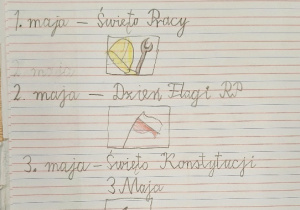 1. maja – Święto Pracy
2. maja – Dzień Flagi RP
3. maja – Święto Konstytucji
3 Maja